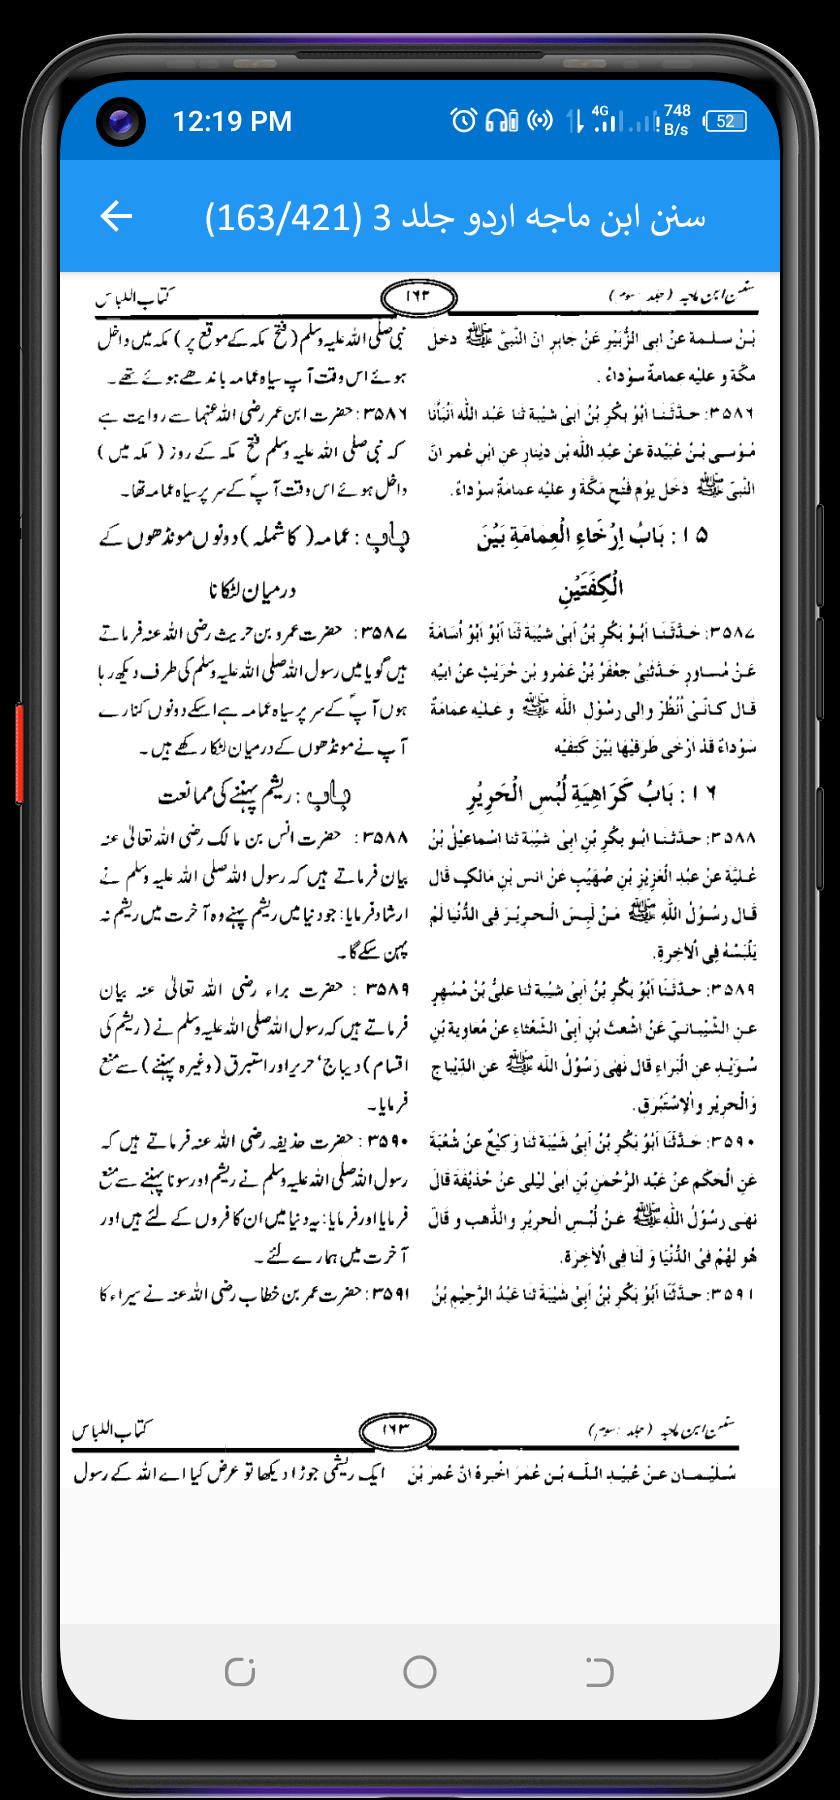 12:19 PM
4G
748
B/s
52
سنن ابن ماجه اردو جلد 3 (163/421)
سنن ابن ماجہ (جلد سوم)
۱۶۲
کتاب اللباس
بْنُ سلمة عنْ ابى الزُّبيْرِ عَنْ جابرٍ انّ النّبىَّ ﷺ دخل
مكّة و عليْه عمامةٌ سوْداءُ .
۳۵۸۶: حدّثنا أبُوْ بكْرِ بْنُ ابىْ شيْبة ثنا عبْد اللّه انْبأنا
مُوْسى بْنُ عُبيْدة عنْ عبْدِ اللّه بْن ديْنارٍ عنِ ابْنِ عُمر انّ
النّبىّ ﷺ دخل يوْم فتْح مكّة و عليْه عمامةٌ سوْداءُ.
۱۵: بَابُ اِرْخَاءِ الْعِمامَةِ بَيْنَ
الْكِفَتَيْنِ
۳۵۸۷: حَدَّثَنا أبُوْ بكْرِ بْنُ أبىْ شيْبة ثَنَا أبُوْ أبُوْ أُسَامَةَ
عَنْ مُساورٍ حدّثنىْ جعْفرُ بْنُ عمْرو بْن حُريْثٍ عنْ ابيْه
قال كانّىْ انْظُرُ والى رسُوْل اللّه ﷺ و عليْه عمامةٌ
سوْداءُ قدْ ارْخى طرفيْها بيْن كتفيْه
۱۶: بَابُ كَرَاهِيَةِ لُبْسِ الْحَرِيْرِ
۳۵۸۸: حدّثنا ابو بكْرِ بْنِ ابىْ شيْبة ثنا اسْماعيْلُ بْنُ
عُليّة عنْ عبْد الْعزِيْزِ بْنِ صُهيْبٍ عنْ انس بْنِ مَالكٍ قال
قال رسُوْلُ اللّهِ ﷺ مَنْ لَبِسَ الْحرِيْرَ فى الدُّنْيا لمْ
يلْبسْهُ فى الْاخرةِ.
۳۵۸۹: حدّثنا أبُوْ بكْرِ بْنُ أبىْ شيْبة ثنا علىُّ بْنُ مُسْهِرٍ
عنِ الشّيْبانيّ عَنْ اشْعث بْنِ أبِى الشّعْثاءِ عنْ مُعاوِية بْنِ
سُويْدٍ عنِ الْبراءِ قال نهى رَسُوْلُ اللّه ﷺ عنِ الدّيْباجِ
والْحرِيْر والْاِسْتبْرقِ.
۳۵۹۰: حدّثنا أبُوْ بكْرِ بْنُ أبِىْ شيْبَةَ ثنا وكيْعٌ عنْ شُعْبَةَ
عَنِ الْحَكمِ عَنْ عبْدِ الرَّحْمنِ بْنِ ابىْ ليْلى عنْ حُذيْفة قالَ
نهى رسُوْلُ اللّهِ ﷺ عنْ لُبْسِ الْحرِيْرِ والذّهب و قالَ
هُو لهُمْ فىْ الدُّنْيَا وَ لنا فى الْاخِرَةِ.
۳۵۹۱: حدّثنا أبُوْ بَكْرِ بْنُ أبِىْ شيْبَةَ ثنا عَبْدُ الرَّحِيْمِ بْنُ
نبی صلی اللہ علیہ وسلم (فتح مکہ کے موقع پر) مکہ میں داخل
ہوئے اس وقت آپ سیاہ عمامہ باندھے ہوئے تھے۔
۳۵۸۶: حضرت ابن عمر رضی اللہ عنہما سے روایت ہے
کہ نبی صلی اللہ علیہ وسلم فتح مکہ کے روز (مکہ میں)
داخل ہوئے اس وقت آپ کے سر پر سیاہ عمامہ تھا۔
باب: عمامہ (کا شملہ) دونوں مونڈھوں کے
درمیان لٹکانا
۳۵۸۷: حضرت عمرو بن حریث رضی اللہ عنہ فرماتے
ہیں گویا میں رسول اللہ صلی اللہ علیہ وسلم کی طرف دیکھ رہا
ہوں آپ کے سر پر سیاہ عمامہ ہے اسکے دونوں کنارے
آپ نے مونڈھوں کے درمیان لٹکا رکھے ہیں۔
باب: ریشم پہننے کی ممانعت
۳۵۸۸: حضرت انس بن مالک رضی اللہ تعالیٰ عنہ
بیان فرماتے ہیں کہ رسول اللہ صلی اللہ علیہ وسلم نے
ارشاد فرمایا: جو دنیا میں ریشم پہنے وہ آخرت میں ریشم نہ
پہن سکے گا۔
۳۵۸۹: حضرت براء رضی اللہ تعالیٰ عنہ بیان
فرماتے ہیں کہ رسول اللہ صلی اللہ علیہ وسلم نے (ریشم کی
اقسام) دیباج' حریر اور استبرق (وغیرہ پہننے) سے منع
فرمایا۔
۳۵۹۰: حضرت حذیفہ رضی اللہ عنہ فرماتے ہیں کہ
رسول اللہ صلی اللہ علیہ وسلم نے ریشم اور سونا پہننے سے منع
فرمایا اور فرمایا: یہ دنیا میں ان کافروں کے لئے ہیں اور
آخرت میں ہمارے لئے۔
۳۵۹۱: حضرت عمر بن خطاب رضی اللہ عنہ نے سیراء کا
سنن ابن ماجہ (جلد سوم)
۱۶۳
کتاب اللباس
سُليْمان عنْ عُبيْدِ اللّه بْن عُمَرَ اخْبرهُ انّ عُمرَ بْنَ
ایک ریشمی جوڑا دیکھا تو عرض کیا اے اللہ کے رسول